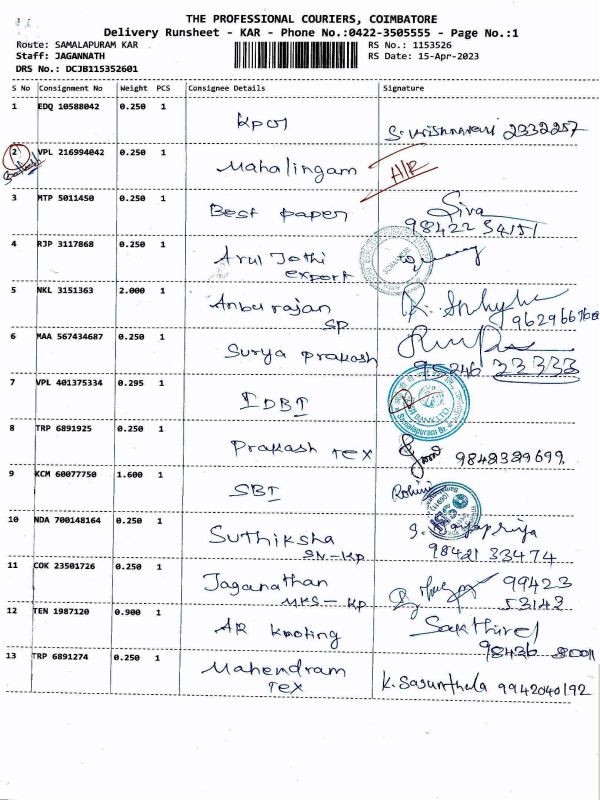 THE PROFESSIONAL COURIERS, COIMBATORE
Delivery Runsheet - KAR - Phone No.:0422-3505555 - Page No.:1
Route: SAMALAPURAM KAR RS No.: 1153526
Staff: JAGANNATH RS Date: 15-Apr-2023
DRS No.: DCJB115352601
S No Consignment No Weight PCS Consignee Details Signature
1 EDQ 10588042 0.250 1 2332257
2 VPL 216994042 0.250 1 Mahalingam
3 MTP 5011450 0.250 1 Best paper Siva
98422 34151
4 RJP 3117868 0.250 1 Arul Jothi
export
5 NKL 3151363 2.000 1 Anburajan
SP
6 MAA 567434687 0.250 1 Surya prakash
95246 33333
7 VPL 401375334 0.295 1 IDBI
8 TRP 6891925 0.250 1 Prakash TEX
9 KCM 60077750 1.600 1 SBI Rohini
10 NDA 700148164 0.250 1 Suthiksha
SN-KP 98421 33474
11 COK 23501726 0.250 1 Jaganathan 99423
MKS-KP 53142
12 TEN 1987120 0.900 1 AR Sakthivel
13 TRP 6891274 0.250 1 Mahendram
TEX K. Sagunthela 9942040192